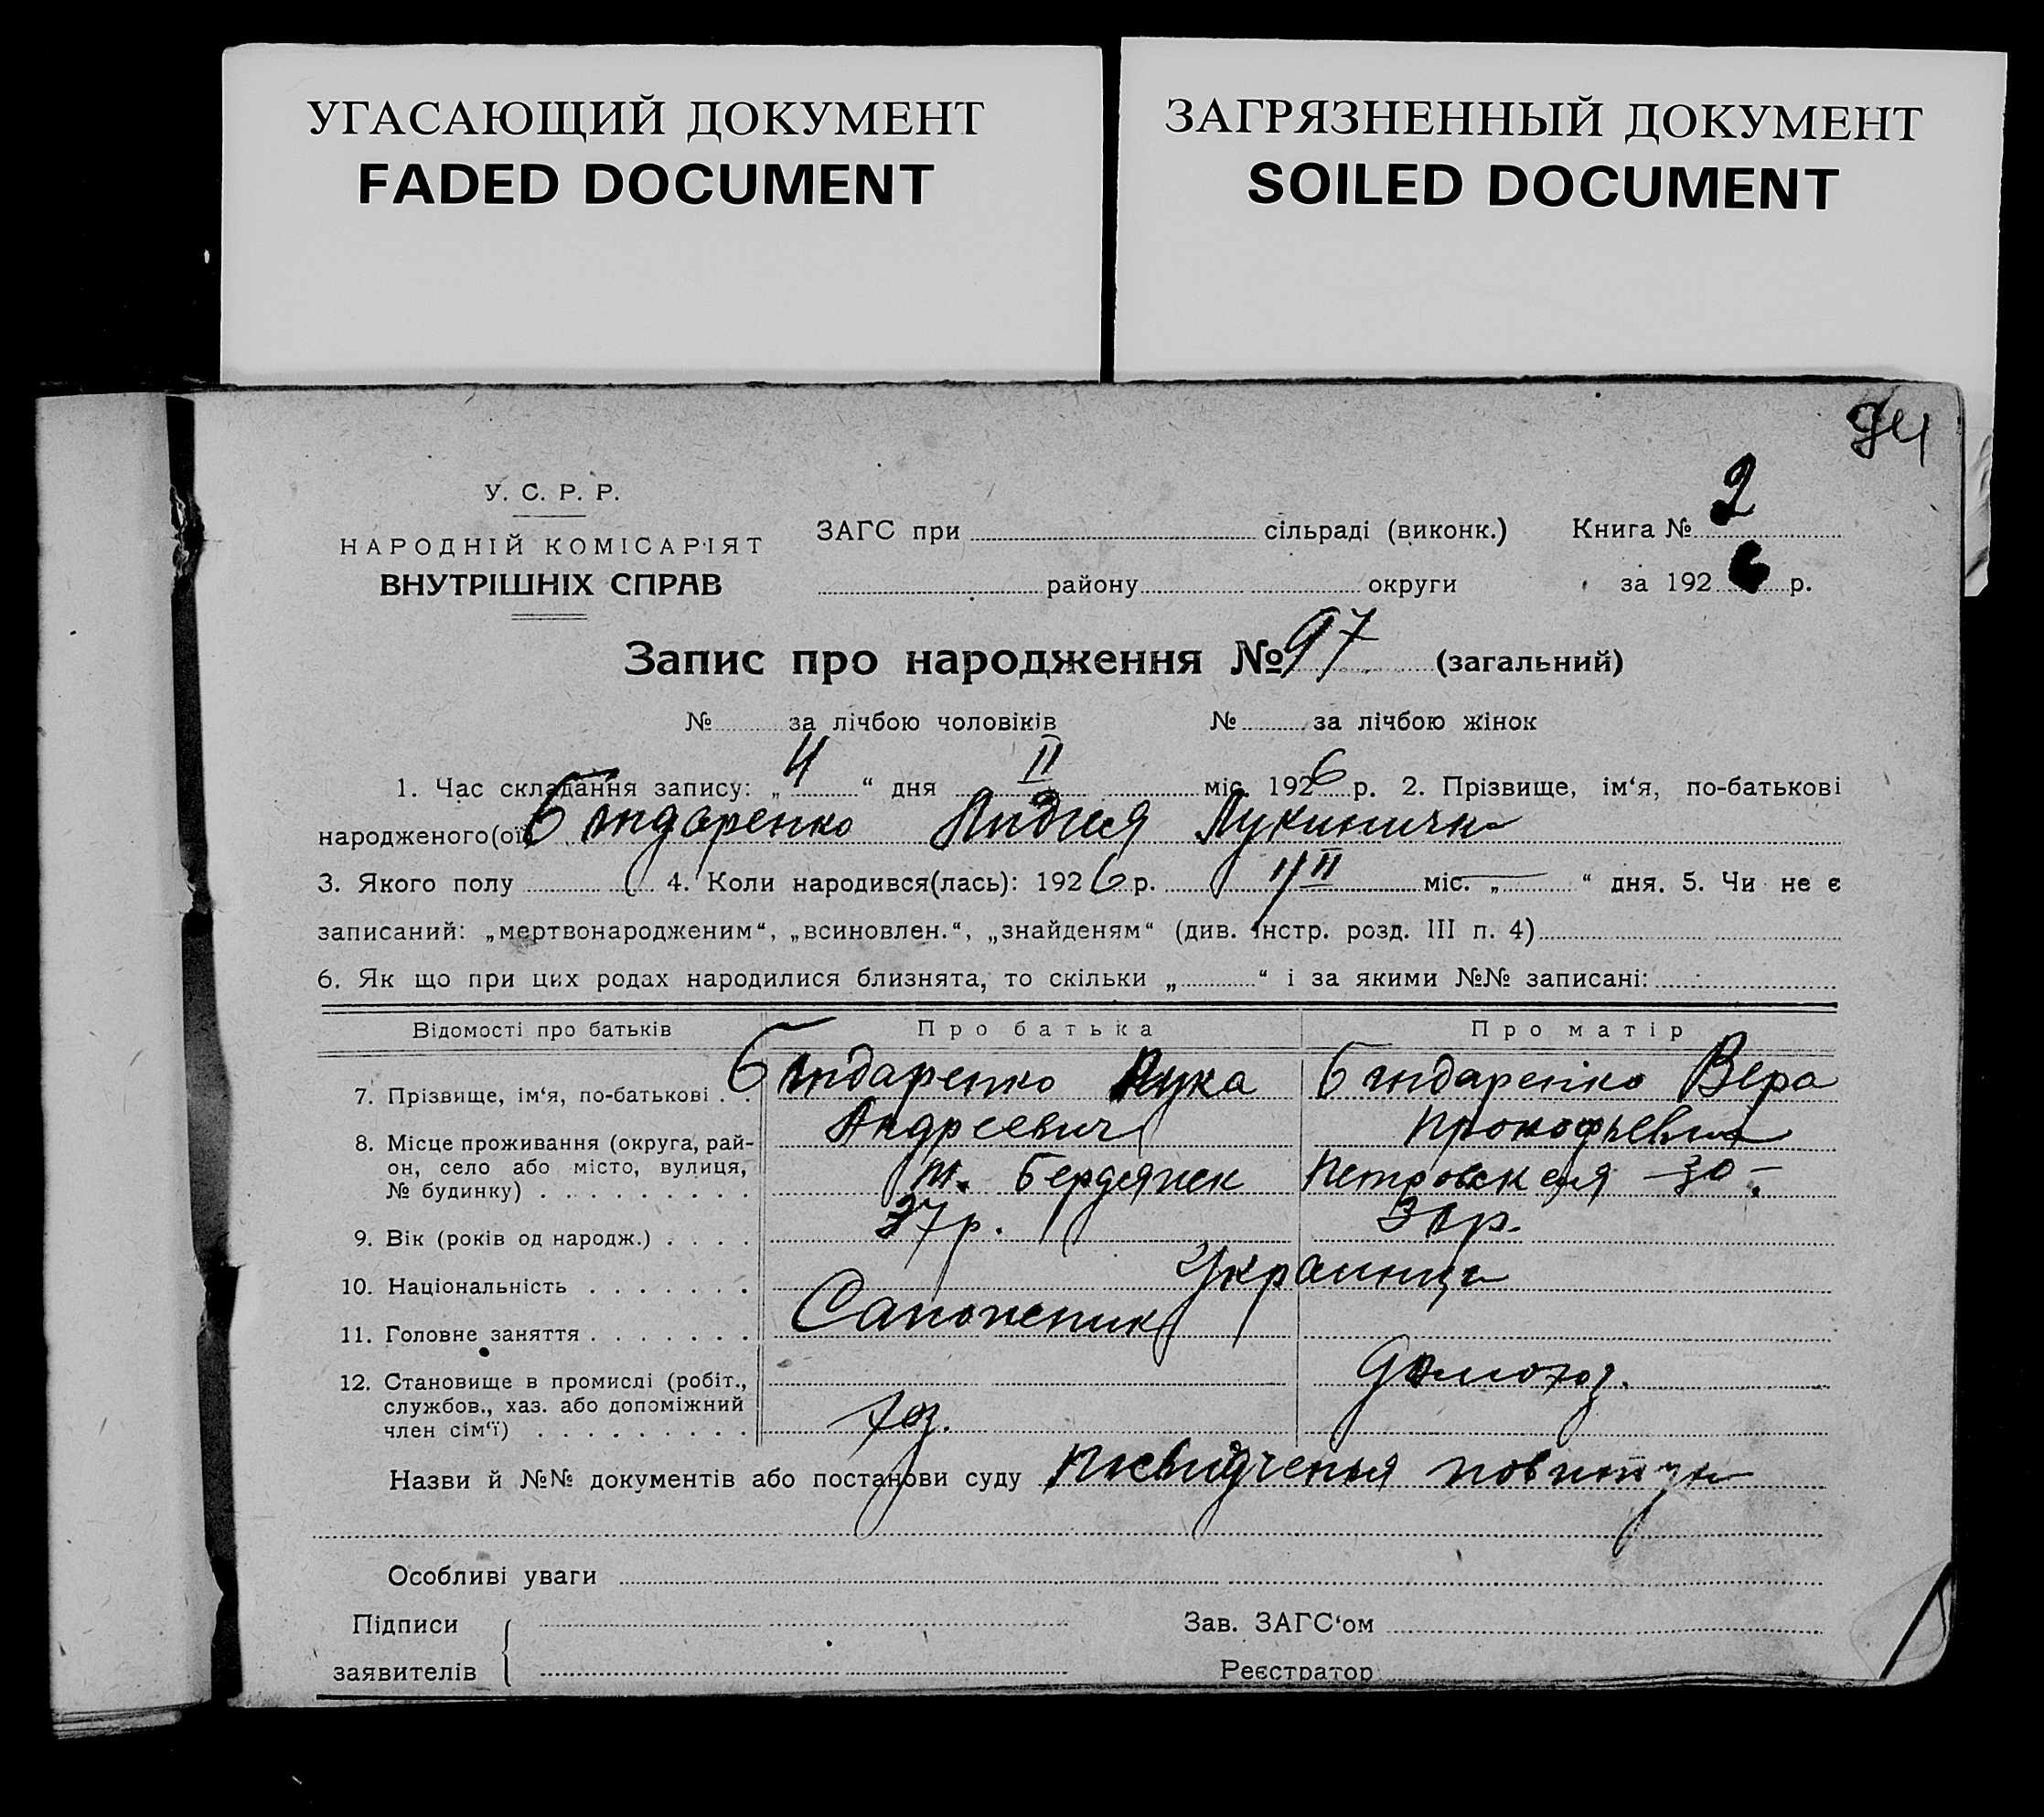 УГАСАЮЩИЙ ДОКУМЕНТ
FADED DOCUMENT
ЗАГРЯЗНЕННЫЙ ДОКУМЕНТ
SOILED DOCUMENT
У. С. Р. Р.
НАРОДНІЙ КОМІСАРІЯТ
ВНУТРІШНІХ СПРАВ
ЗАГС при сільраді (виконк.) Книга № 2
району округи за 192 6 р.
Запис про народження № 97 (загальний)
№ за лічбою чоловіків № за лічбою жінок
1. Час складання запису: „ 4 “ дня II міс. 192 6 р. 2. Прізвище, ім‘я, по-батькові
народженого(ої) Бондаренко Лидия Лукинична
3. Якого полу 4. Коли народився(лась): 192 6 р. 1/II міс. „ — “ дня. 5. Чи не є
записаний: „мертвонародженим“, „всиновлен.“, „знайденям“ (див. інстр. розд. III п. 4)
6. Як що при цих родах народилися близнята, то скільки „ “ і за якими №№ записані:
Відомості про батьків Про батька Про матір
7. Прізвище, ім‘я, по-батькові . . Бондаренко Лука Бондаренко Вера
Андреевич Прокофьевна
8. Місце проживання (округа, рай-
он, село або місто, вулиця,
№ будинку) . . . . . . . . . м. Бердянск Петровская 30.
9. Вік (років од народж.) . . . . 37 р. 30 р.
10. Національність . . . . . . . Украинци
11. Головне заняття . . . . . . . Сапожник
12. Становище в промислі (робіт.,
службов., хаз. або допоміжний
член сім‘ї) . . . . . . . . . хоз. домохоз.
Назви й №№ документів або постанови суду Посвидченья повитухи
Особливі уваги
Підписи
заявителів
Зав. ЗАГС‘ом
Реєстратор